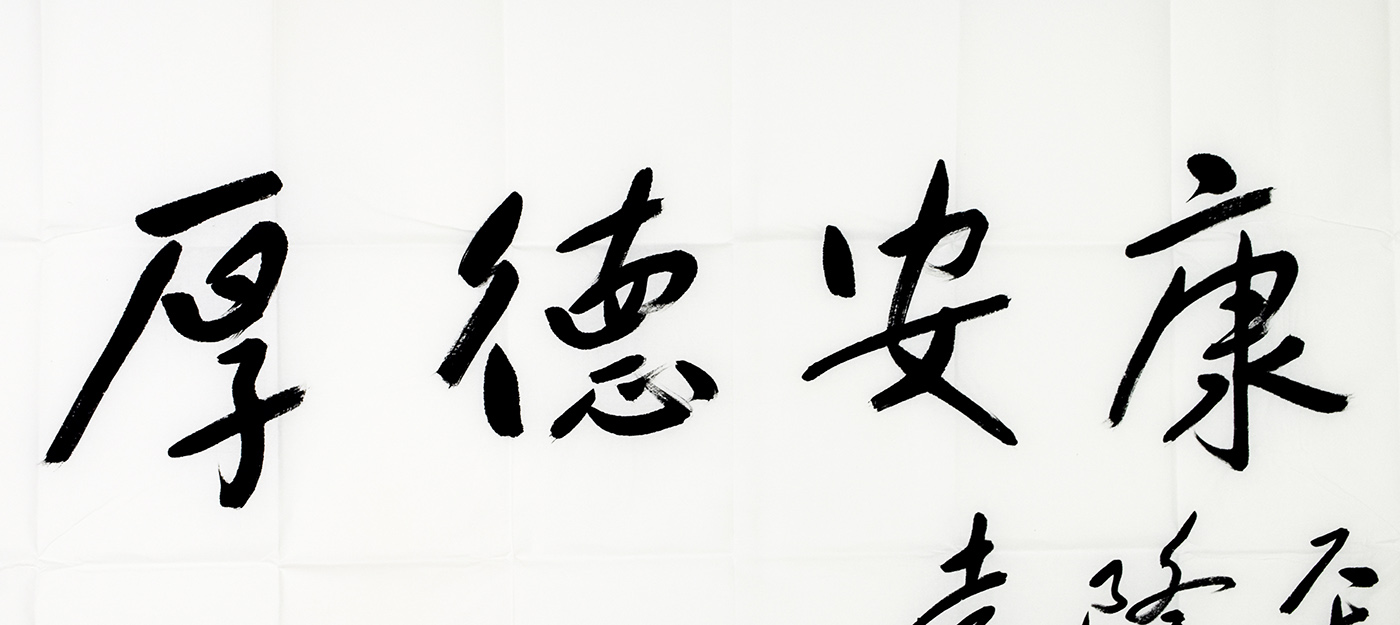 厚德安康